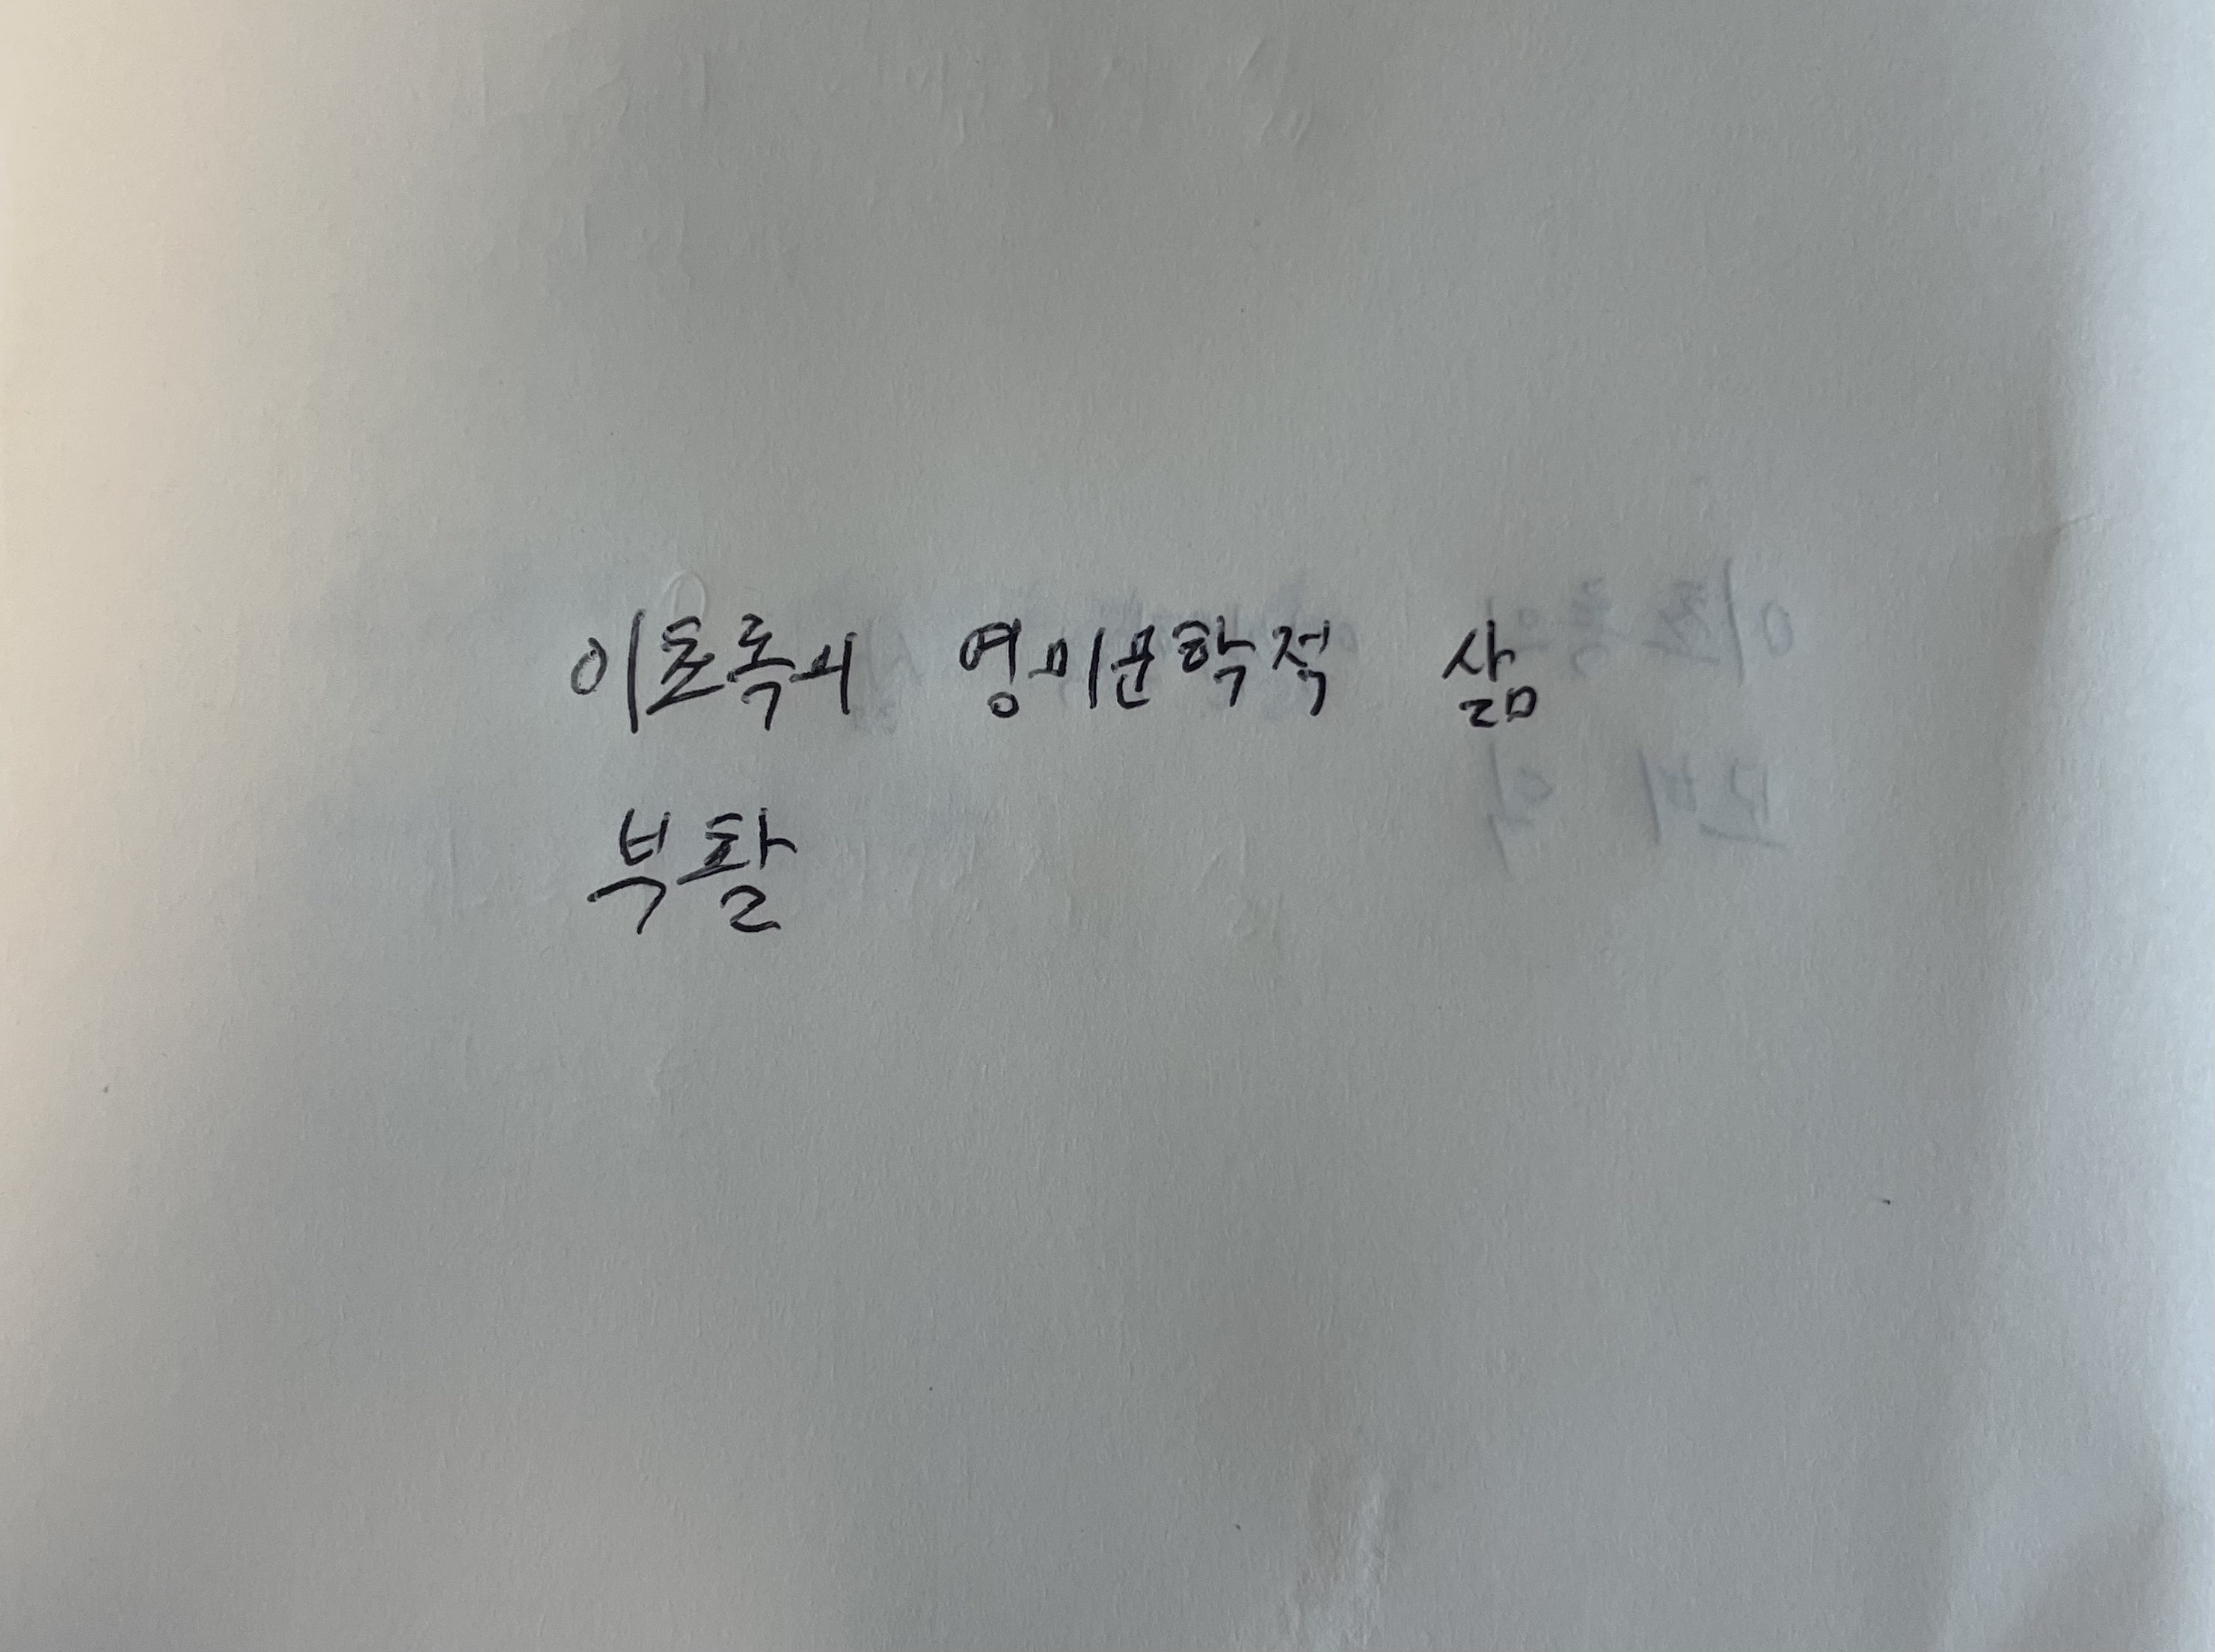 이초록의 영미문학적 삶
부활